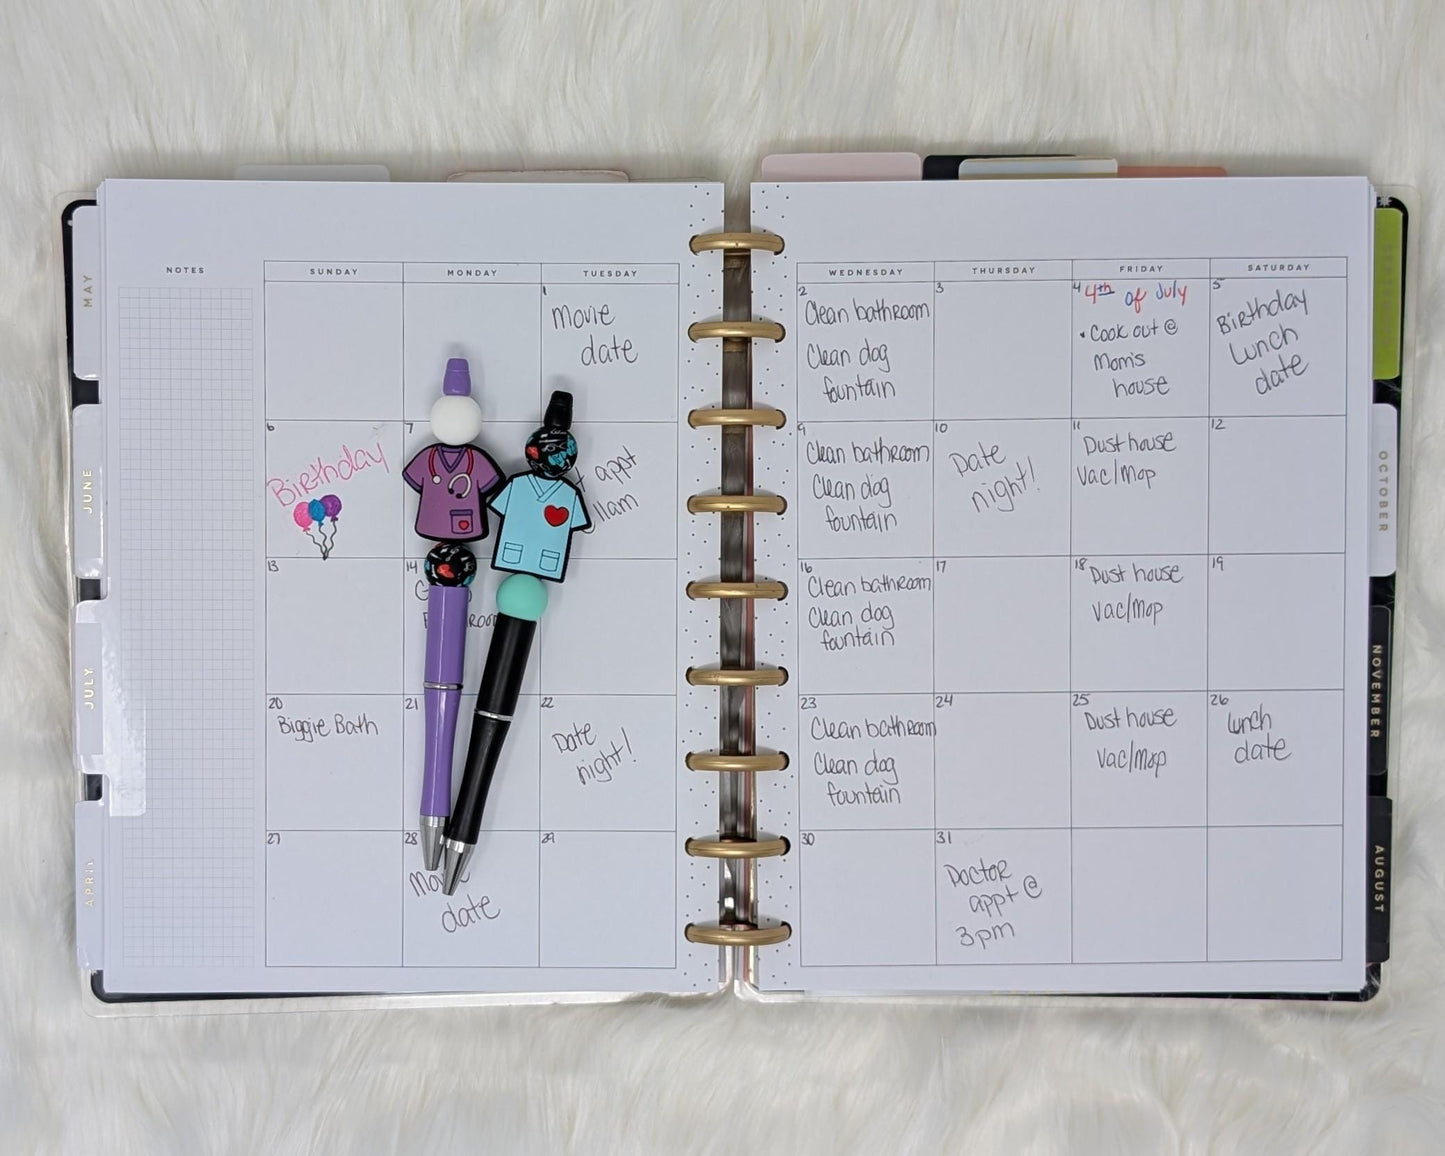 NOTES
SUNDAY
MONDAY
TUESDAY
WEDNESDAY
THURSDAY
FRIDAY
SATURDAY
1
Movie
date
2
Clean bathroom
Clean dog
fountain
3
4
4th of July
• Cook out @
Mom's
house
5
Birthday
Lunch
date
6
Birthday
7
appt
11am
9
Clean bathroom
Clean dog
fountain
10
Date
night!
11
Dust house
Vac/Mop
12
13
14
16
Clean bathroom
Clean dog
fountain
17
18
Dust house
Vac/Mop
19
20
Biggie Bath
21
22
Date
night!
23
Clean bathroom
Clean dog
fountain
24
25
Dust house
Vac/Mop
26
Lunch
date
27
28
date
29
30
31
Doctor
appt @
3pm
MAY
JUNE
JULY
APRIL
OCTOBER
NOVEMBER
AUGUST